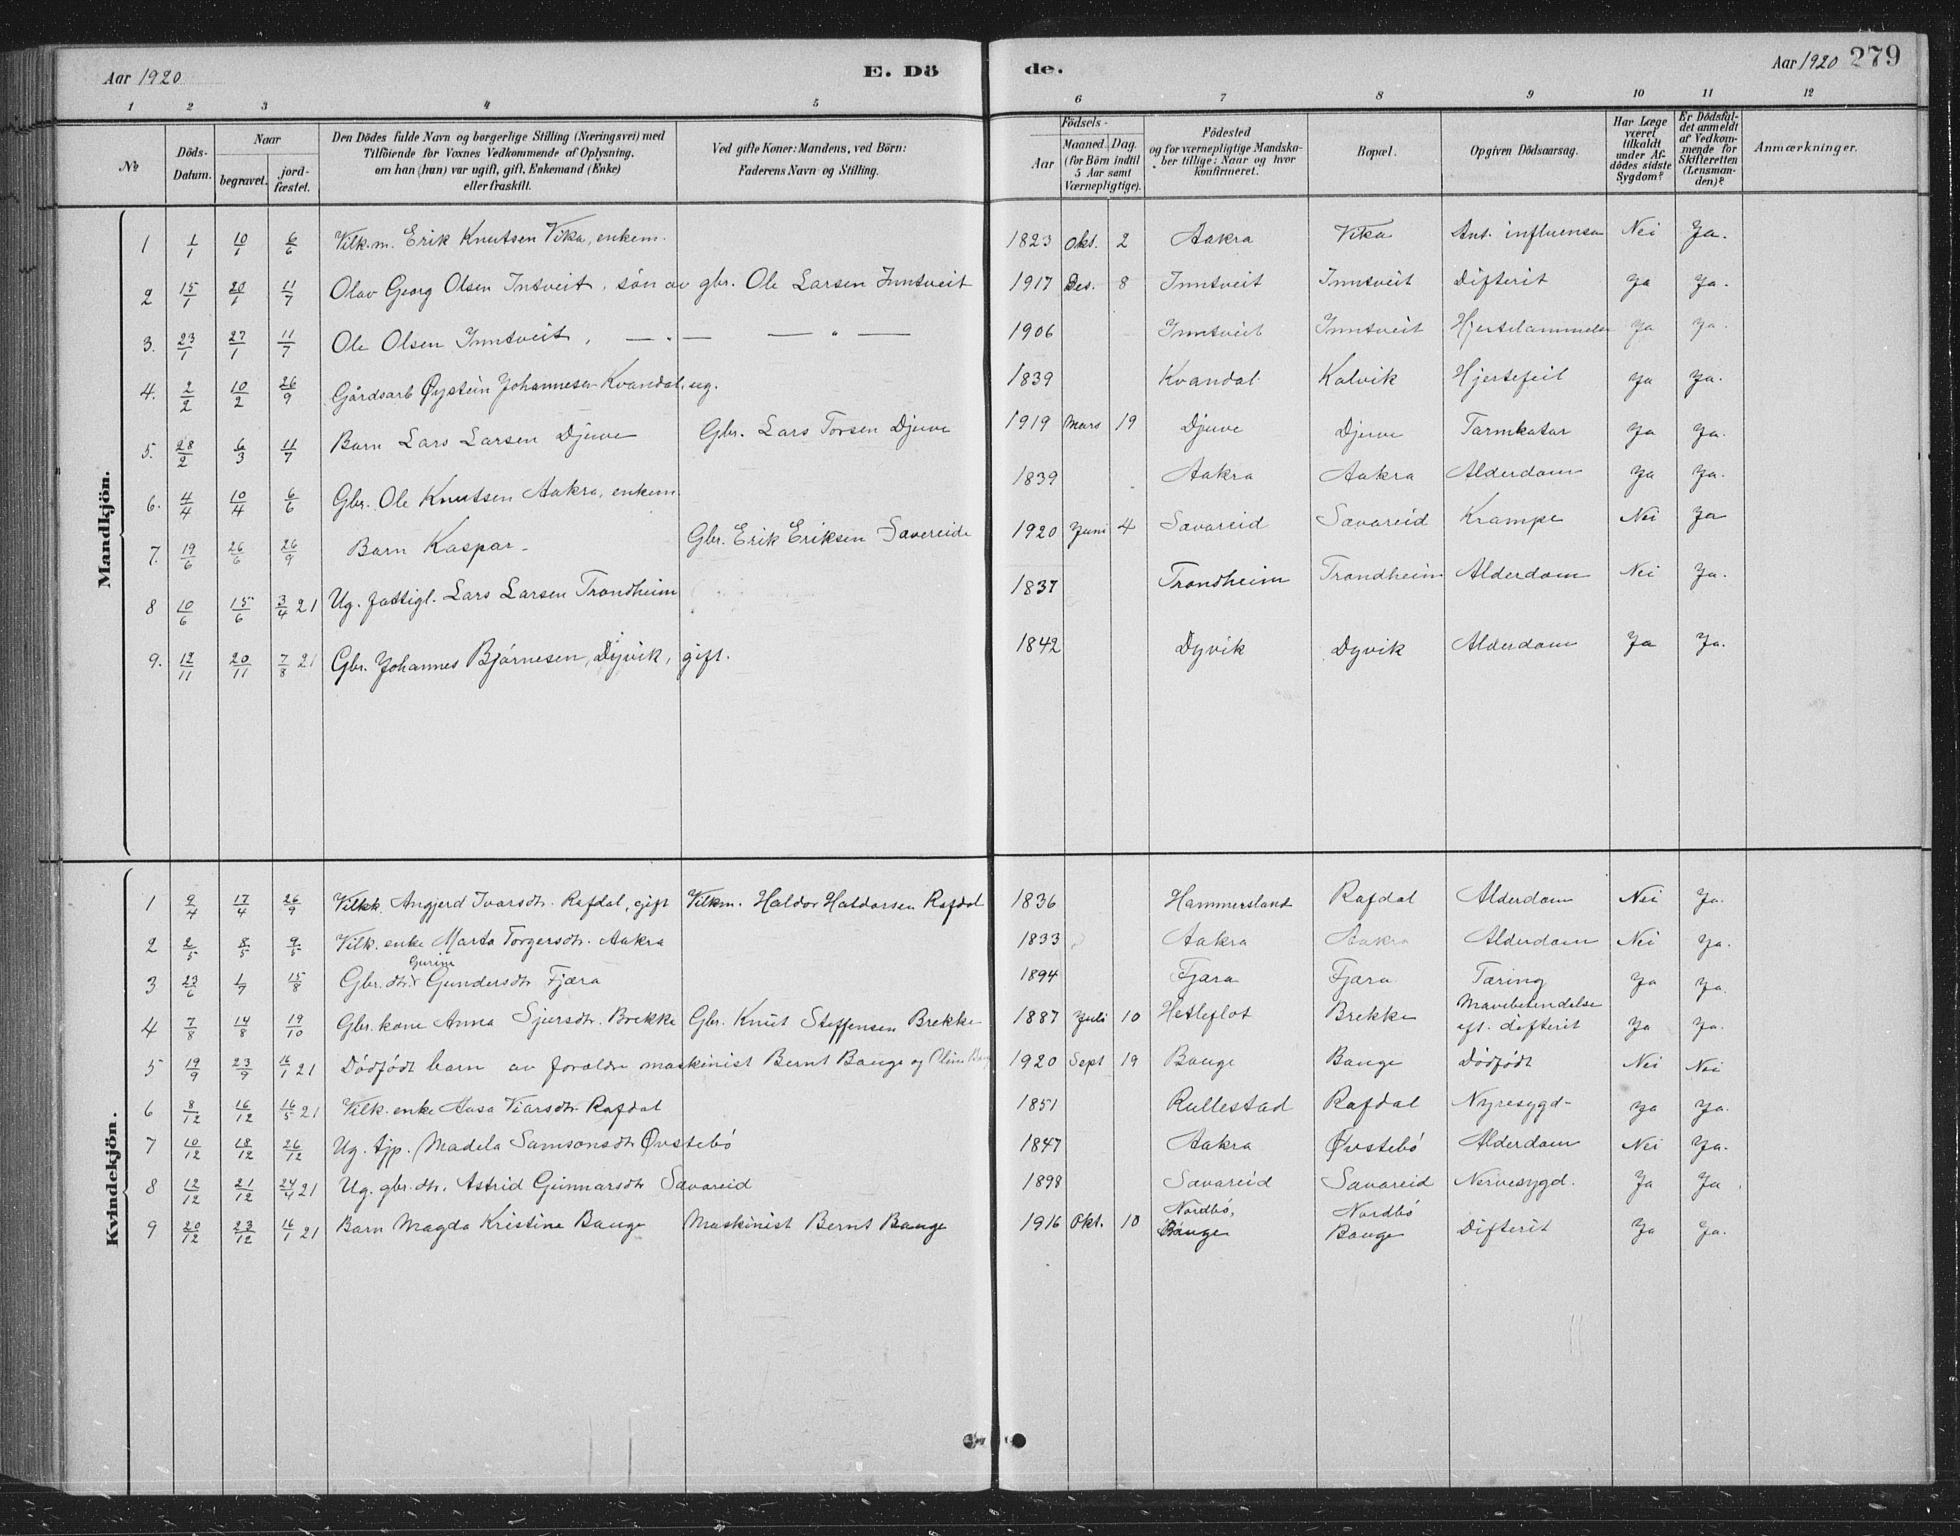 Aar 1920 E. Dö de. Aar 1920 279
1 2 3 4 5 6 7 8 9 10 11 12
No
Döds-Datum.
Naar
begravet.
jord-fæstet.
Den Dödes fulde Navn og borgerlige Stilling (Næringsvei) med
Tilföiende for Voxnes Vedkommende af Oplysning,
om han (hun) var ugift, gift, Enkemand (Enke)
eller fraskilt.
Ved gifte Koner: Mandens, ved Börn:
Faderens Navn og Stilling.
Födsels-
Aar
Maaned. Dag.
(for Börn indtil
5 Aar samt
Værnepligtige).
Födested
og for værnepligtige Mandska-
ber tillige: Naar og hvor
konfirmeret.
Bopæl.
Opgiven Dödsaarsag.
Har Læge
været
tilkaldt
under Af-
dödes sidste
Sygdom?
Er Dödsfal-
det anmeldt
af Vedkom-
mende for
Skifteretten
(Lensman-
den)?
Anmærkninger.
Mandkjön.
1 1/1 10/1 6/6 Vilk.m. Erik Knutsen Vika, enkem. 1823 Okt. 2 Aakra Vika Ant. influensa Nei Ja.
2 15/1 20/1 11/7 Olav Georg Olsen Intveit, søn av gbr. Ole Larsen Inntveit 1917 Des. 8 Inntveit Inntveit Difterit Ja Ja.
3. 23/1 27/1 11/7 Ole Olsen Inntveit, — " — — " — 1906 Inntveit Inntveit Hjertelammelse Ja Ja.
4. 2/2 10/2 26/9 Gårdsarb Øystein Johannesen Kvandal, ug. 1839 Kvandal Kalvik Hjertefeil Ja Ja.
5. 28/2 6/3 11/7 Barn Lars Larsen Djuve Gbr. Lars Torsen Djuve 1919 Mars 19 Djuve Djuve Tarmkatar Ja Ja.
6. 4/4 10/4 6/6 Gbr. Ole Knutsen Aakra, enkem. 1839 Aakra Aakra Alderdom Ja Ja.
7. 19/6 26/6 26/9 Barn Kaspar. Gbr. Erik Eriksen Savereide 1920 Juni 4 Savareid Savareid Krampe Nei Ja
8 10/6 15/6 3/4 21 Ug. fattigl. Lars Larsen Trondheim 1837 Trondheim Trondheim Alderdom Nei Ja.
9. 12/11 20/11 7/8 21 Gbr. Johannes Bjørnesen, Dyvik, gift. 1842 Dyvik Dyvik Alderdom Ja Ja.
Kvindekjön.
1 9/4 17/4 26/9 Vilkk. Angjerd Ivarsdtr. Rafdal, gift Vilkm. Haldor Haldorsen Rafdal 1836 Hammersland Rafdal Alderdom Nei Ja.
2 2/5 8/5 9/5 Vilk. enke Marta Torgersdtr. Aakra 1833 Aakra Aakra Alderdom Nei Ja.
Gurine
3 23/6 1/7 15/8 Gbr. dtr. Gundersdtr Fjæra 1894 Fjæra Fjæra Tæring Ja Ja.
4 7/8 14/8 19/10 Gbr. kone Anna Sjursdtr. Brekke Gbr. Knut Steffensen Brekke 1887 Juli 10 Hetleflot Brekke Mavebetendelse eft. difterit Ja Ja.
5 19/9 23/9 16/1 21 Dødfødt barn av forældre maskinist Bernt Bauge og 1920 Sept 19 Bauge Bauge Dødfødt Nei Nei
6 8/12 16/12 16/5 21 Vilk. enke Aasa Viarsdtr. Rafdal 1851 Rullestad Rafdal Nyresygd. Ja Ja.
7 10/12 18/12 26/12 Ug. tjp. Madela Samsonsdtr Øvstebø 1847 Aakra Øvstebø Alderdom Nei Ja.
8 12/12 21/12 24/4 21 Ug. gbr. dtr. Astrid Gunnarsdtr Savareid 1898 Savareid Savareid Nervesygd. Ja Ja
9 20/12 23/12 16/1 21 Barn Magda Kristine Bauge Maskinist Bernt Bauge 1916 Okt. 10 Nordbø, Bauge Nordbø Bauge Difterit Ja Ja.